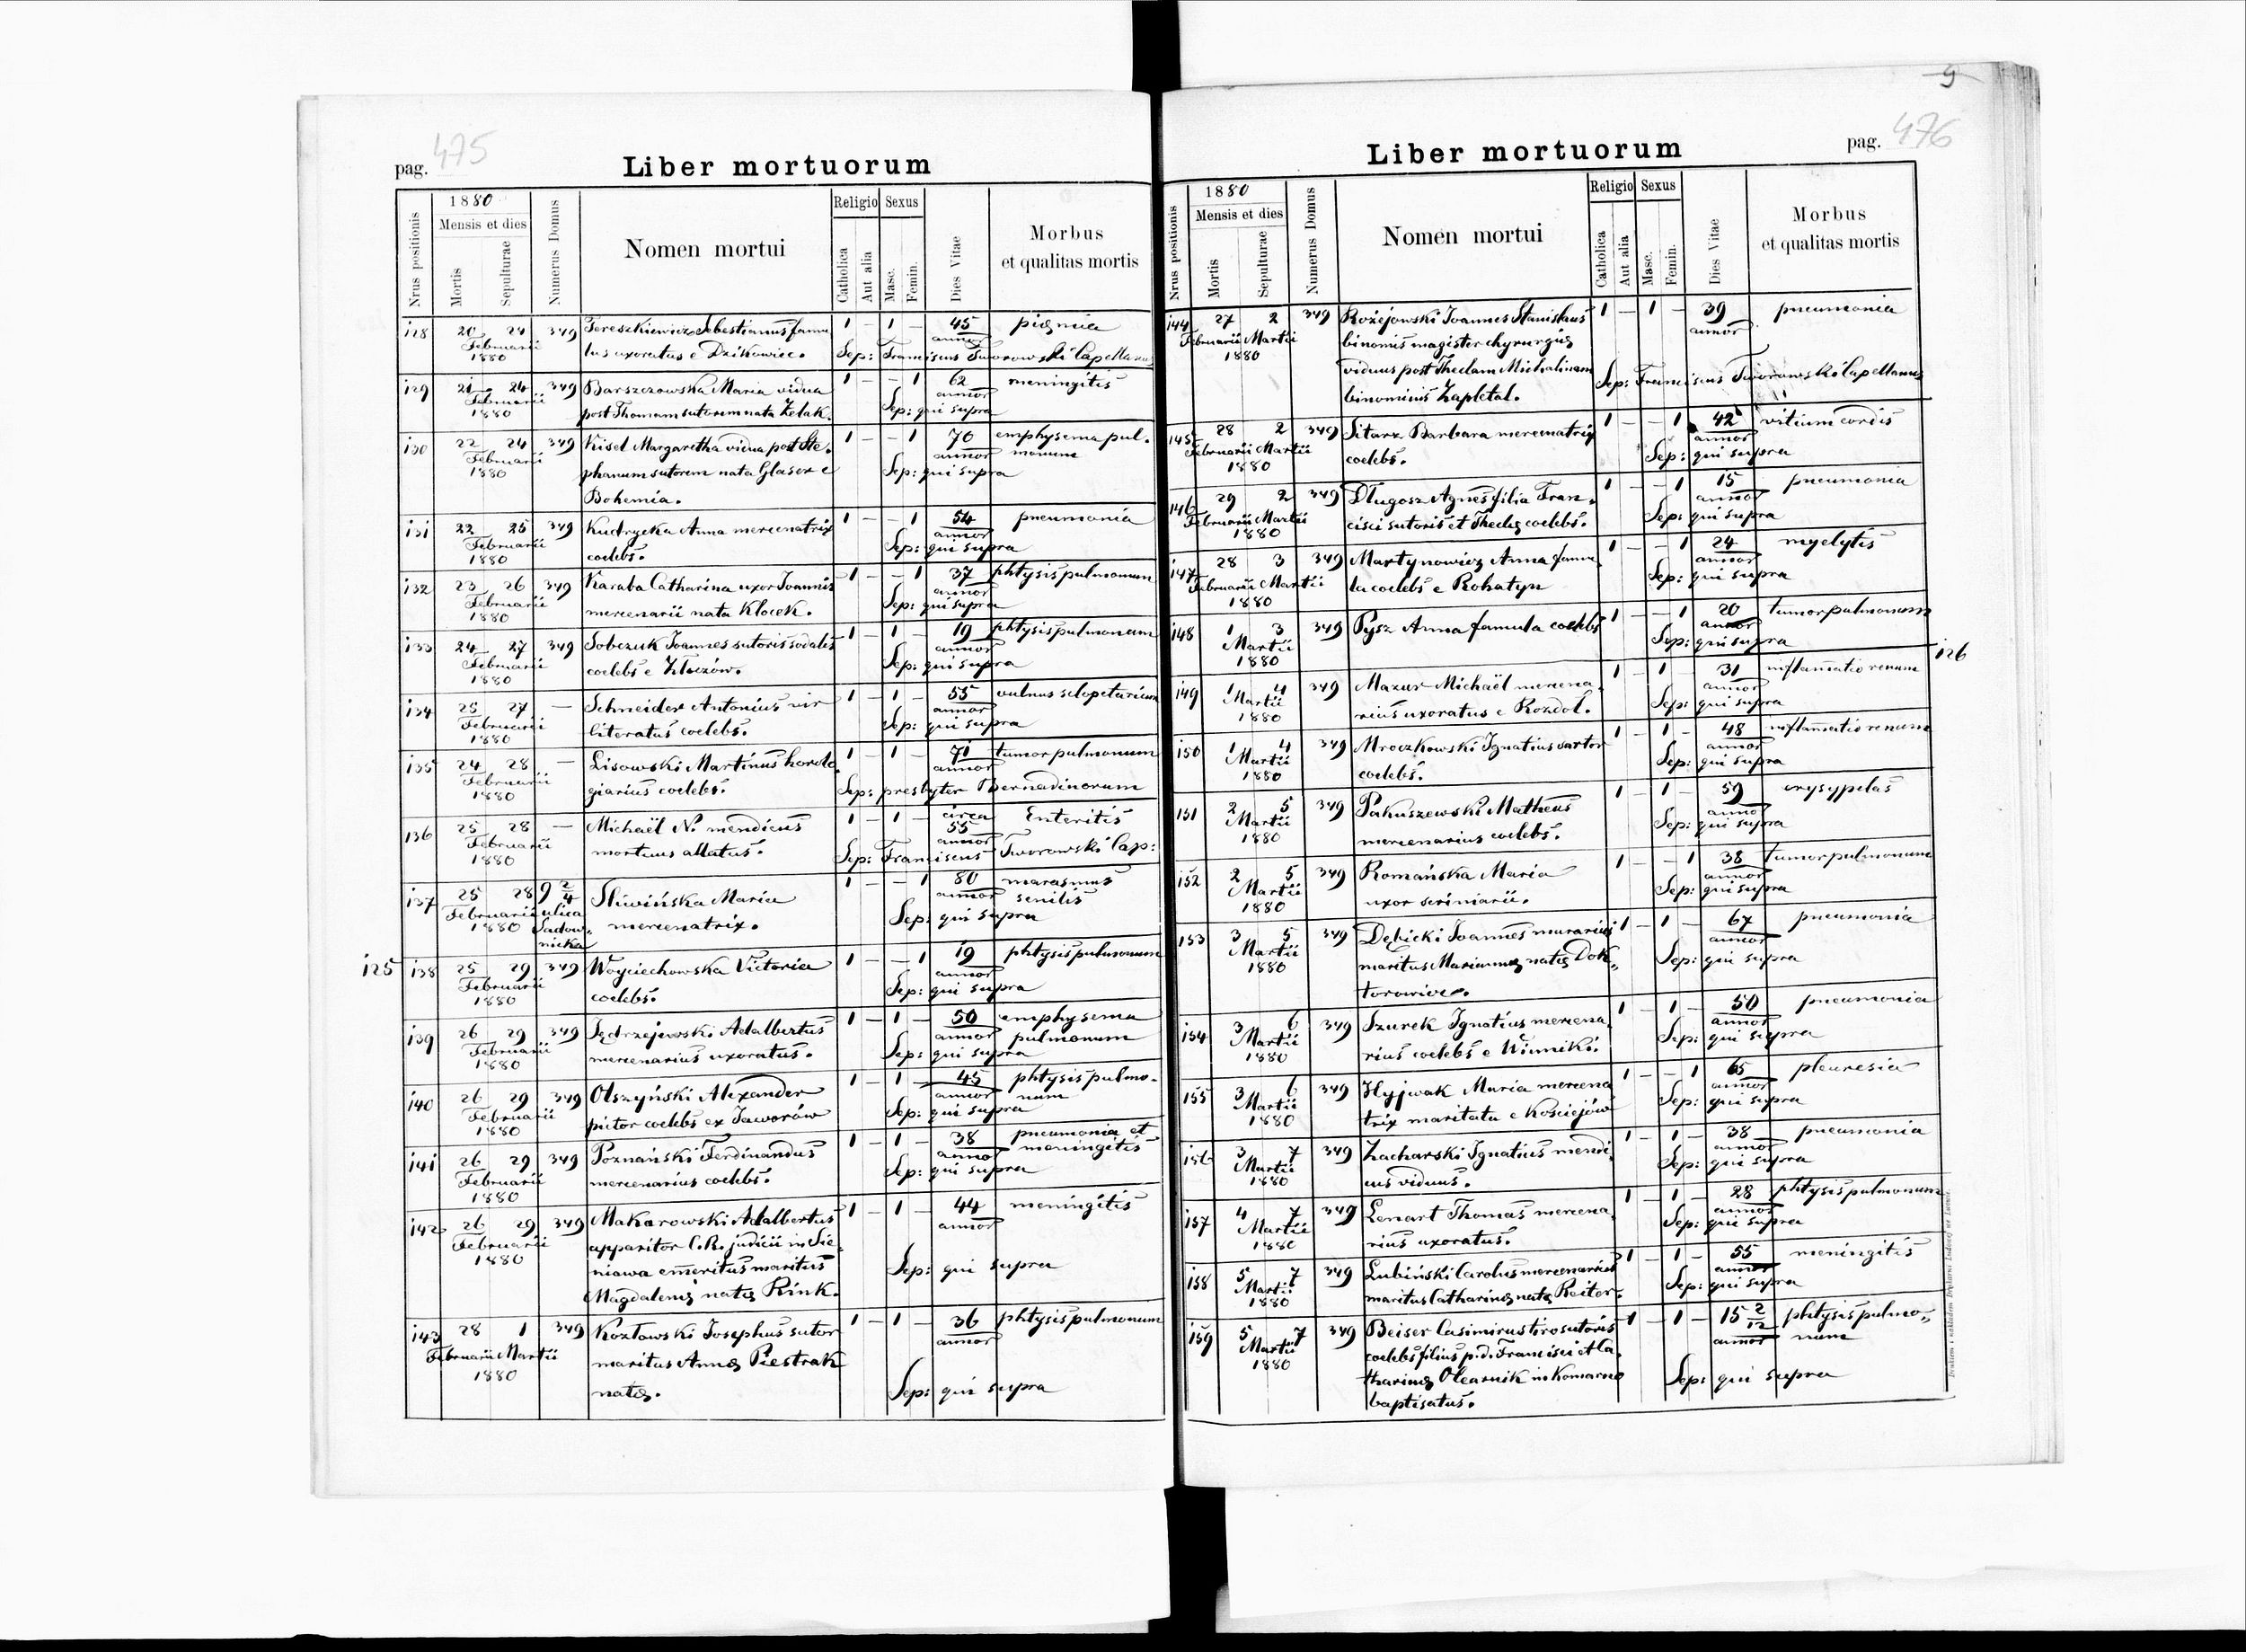 475
pag.
Liber mortuorum
Nrus positionis
1880
Mensis et dies
Mortis
Sepulturae
Numerus Domus
Nomen mortui
Religio
Catholica
Aut alia
Sexus
Masc.
Femin.
Dies Vitae
Morbus
et qualitas mortis
128 20 24 349 Tereszkiewicz Sebestianus famu 1 – 1 – 45
Februarii 1880 lus uxoratus e Dzikowiec. annor
Sep: Franciscus Tworowski Capellanus
129 21 24 349 Barszczowska Maria vidua 1 – – 1 62 meningitis
Februarii 1880 post Thomam sutorem nata Żelak. annor
Sep: qui supra
130 22 24 349 Kisel Margaretha vidua post Ste- 1 – – 1 70 emphysema pul-
Februarii 1880 phanum sutorem nata Glaser e annor monum
Bohemia. Sep: qui supra
131 22 25 349 Kudrycka Anna mercenatrix 1 – – 1 54 pneumonia
Februarii 1880 coelebs. annor
Sep: qui supra
132 23 26 349 Karaba Catharina uxor Joannis 1 – – 1 37 phtysis pulmonum
Februarii 1880 mercenarii nata Klocek. annor
Sep: qui supra
133 24 27 349 Sobczuk Joannes sutoris sodalis 1 – 1 – 19 phtysis pulmonum
Februarii 1880 coelebs e Złoczów. annor
Sep: qui supra
134 25 27 — Schneider Antonius vir 1 – 1 – 55 vulnus sclopetarium
Februarii 1880 literatus coelebs. annor
Sep: qui supra
135 24 28 — Lisowski Martinus horolo 1 – 1 – 71 tumor pulmonum
Februarii 1880 giarius coelebs. annor
Sep: presbyter Bernadinorum
136 25 28 — Michaël N. mendicus 1 – 1 – circa 55 Enteritis
Februarii 1880 mortuus allatus. annor
Sep: Franciscus Tworowski Cap:
137 25 28 9 2/4 Śliwińska Maria 1 – – 1 80 marasmus
Februarii 1880 ulica Sadow- nicka mercenatrix. annor senilis
Sep: qui supra
125
138 25 29 349 Woyciechowska Victoria 1 – – 1 19 phtysis pulmonum
Februarii 1880 coelebs. annor
Sep: qui supra
139 26 29 349 Jędrzejewski Adalbertus 1 – 1 – 50 emphysema
Februarii 1880 mercenarius uxoratus. annor pulmonum
Sep: qui supra
140 26 29 349 Olszyński Alexander 1 – 1 – 45 phtysis pulmo-
Februarii 1880 pictor coelebs ex Jaworów annor num
Sep: qui supra
141 26 29 349 Poznański Ferdinandus 1 – 1 – 38 pneumonia et
Februarii 1880 mercenarius coelebs. annor meningitis
Sep: qui supra
142 26 29 349 Makarowski Adalbertus 1 – 1 – 44 meningitis
Februarii 1880 apparitor C.R. judicii in Sie- annor
niawa emeritus maritus
Magdalenę natę Rink.
Sep: qui supra
143 28 1 349 Kozłowski Josephus sutor 1 – 1 – 36 phtysis pulmonum
Februarii Martii 1880 maritus Annę Piestrak annor
natę.
Sep: qui supra
9
476
pag.
Liber mortuorum
Nrus positionis
1880
Mensis et dies
Mortis
Sepulturae
Numerus Domus
Nomen mortui
Religio
Catholica
Aut alia
Sexus
Masc.
Femin.
Dies Vitae
Morbus
et qualitas mortis
144 27 2 349 Rożejowski Joannes Stanislaus 1 – 1 – 39 pneumonia
Februarii Martii 1880 binomis magister chyrurgię annor
viduus post Theclam Michalinam
binominis Zapletal.
Sep: Franciscus Tworowski Capellanus
145 28 2 349 Sitarz Barbara mercenatrix 1 – – 1 42 vitium cordis
Februarii Martii 1880 coelebs. annor
Sep: qui supra
146 29 2 349 Długosz Agnes filia Fran- 1 – – 1 15 pneumonia
Februarii Martii 1880 cisci sutoris et Theclę coelebs. annor
Sep: qui supra
147 28 3 349 Martynowicz Anna famu 1 – – 1 24 myelytis
Februarii Martii 1880 la coelebs e Rohatyn annor
Sep: qui supra
148 1 3 349 Pysz Anna famula coelebs 1 – – 1 20 tumor pulmonum
Martii 1880 annor
Sep: qui supra
126
149 1 4 349 Mazur Michaël mercena- 1 – 1 – 31 inflamatio renum
Martii 1880 rius uxoratus e Rozdoł. annor
Sep: qui supra
150 1 4 349 Mroczkowski Ignatius sartor 1 – 1 – 48 inflamatio renum
Martii 1880 coelebs. annor
Sep: qui supra
151 2 5 349 Pakuszewski Matheus 1 – 1 – 59 erysypelas
Martii 1880 mercenarius coelebs. annor
Sep: qui supra
152 2 5 349 Romańska Maria 1 – – 1 38 tumor pulmonum
Martii 1880 uxor scriniarii. annor
Sep: qui supra
153 3 5 349 Dębicki Joannes murarius 1 – 1 – 67 pneumonia
Martii 1880 maritus Mariannę natę Dok- annor
torowicz.
Sep: qui supra
154 3 6 349 Szurek Ignatius mercena- 1 – 1 – 50 pneumonia
Martii 1880 rius coelebs e Winniki. annor
Sep: qui supra
155 3 6 349 Hyjwak Maria mercena 1 – – 1 65 pleuresia
Martii 1880 trix maritata e Kościejów annor
Sep: qui supra
156 3 7 349 Zacharski Ignatius mendi- 1 – 1 – 38 pneumonia
Martii 1880 cus viduus. annor
Sep: qui supra
157 4 7 349 Lenart Thomas mercena- 1 – 1 – 28 phtysis pulmonum
Martii 1880 rius uxoratus. annor
Sep: qui supra
158 5 7 349 Lubiński Carolus mercenarius 1 – 1 – 55 meningitis
Martii 1880 maritus Catharinę natę Reiter. annor
Sep: qui supra
159 5 7 349 Beiser Casimirus tiro sutoris 1 – 1 – 15 2/12 phtysis pulmo-
Martii 1880 coelebs filius p.d. Francisci et Ca- annor num
tharinę Olearnik in Komarno
baptisatus.
Sep: qui supra